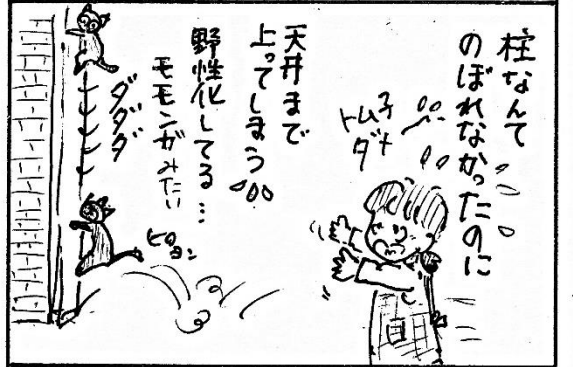 柱なんて
のぼれなかったのに
トムチ
ダメ
天井まで
上ってしまう
野性化してる…
モモンガみたい
ダダダ
ヒョン